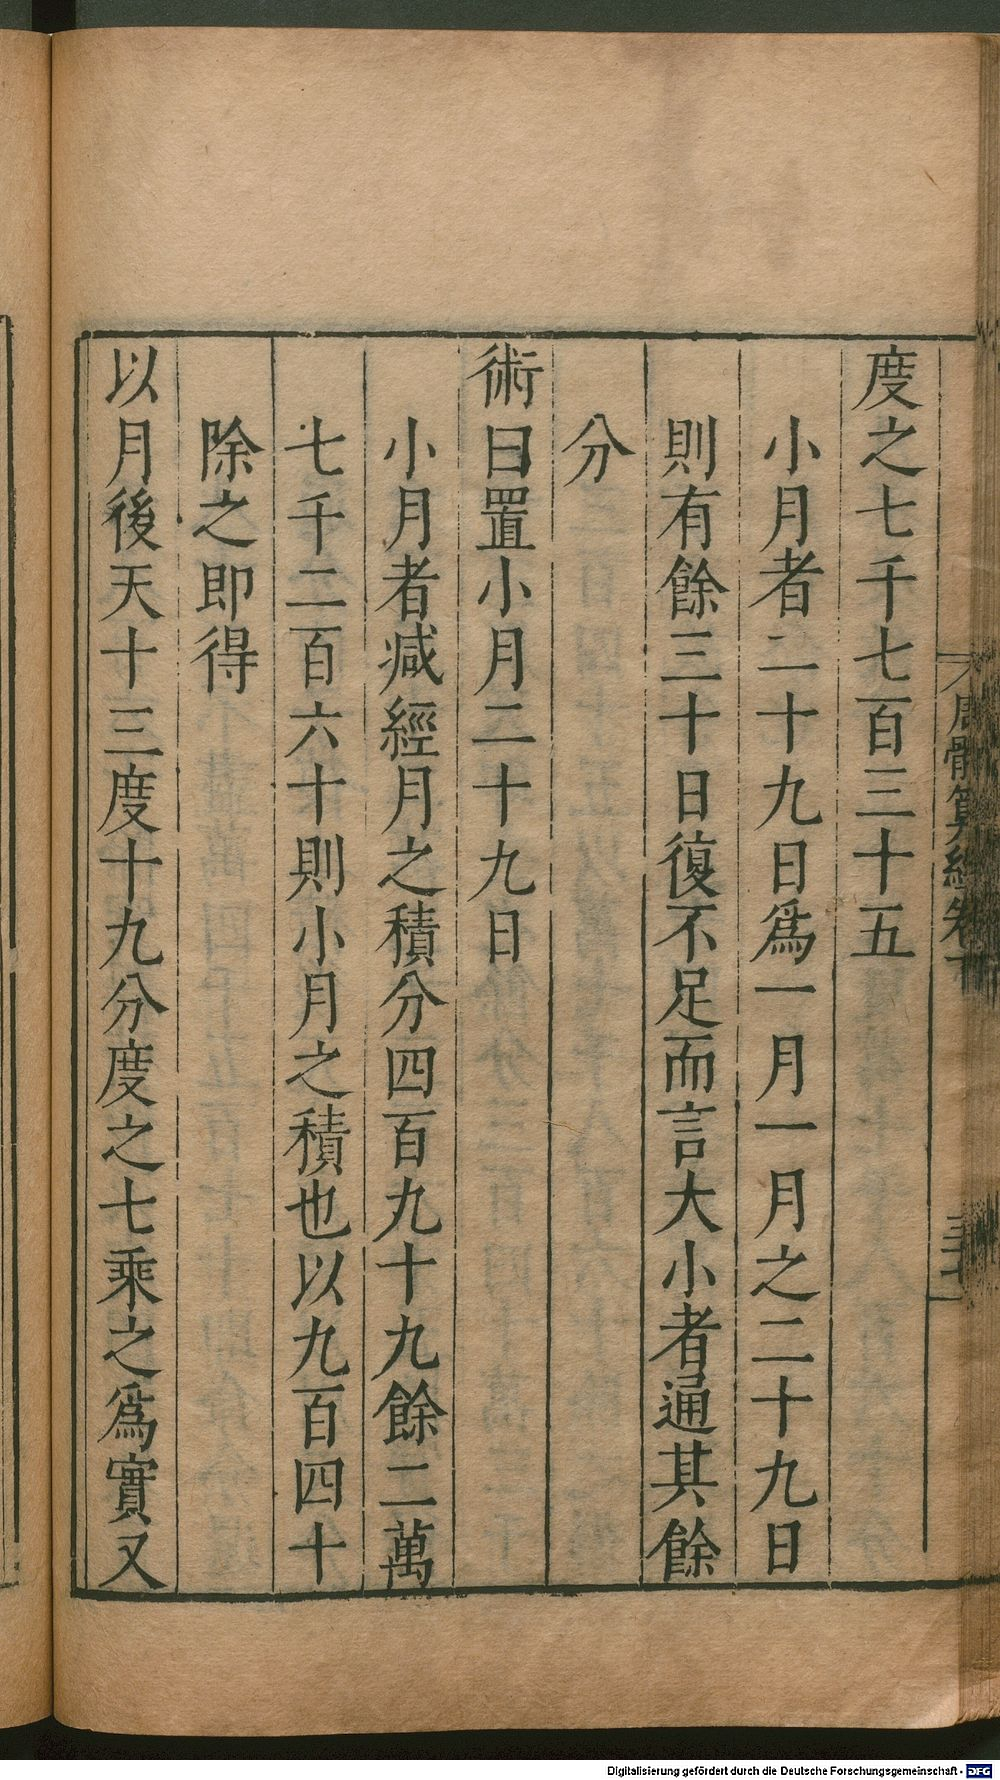 度之七千七百三十五
小月者二十九日爲一月一月之二十九日
則有餘三十日復不足而言大小者通其餘
分
術曰置小月二十九日
小月者減經月之積分四百九十九餘二萬
七千二百六十則小月之積也以九百四十
除之即得
以月後天十三度十九分度之七乘之爲實又
周髀算經卷下
三七
Digitalisierung gefördert durch die Deutsche Forschungsgemeinschaft - DFG